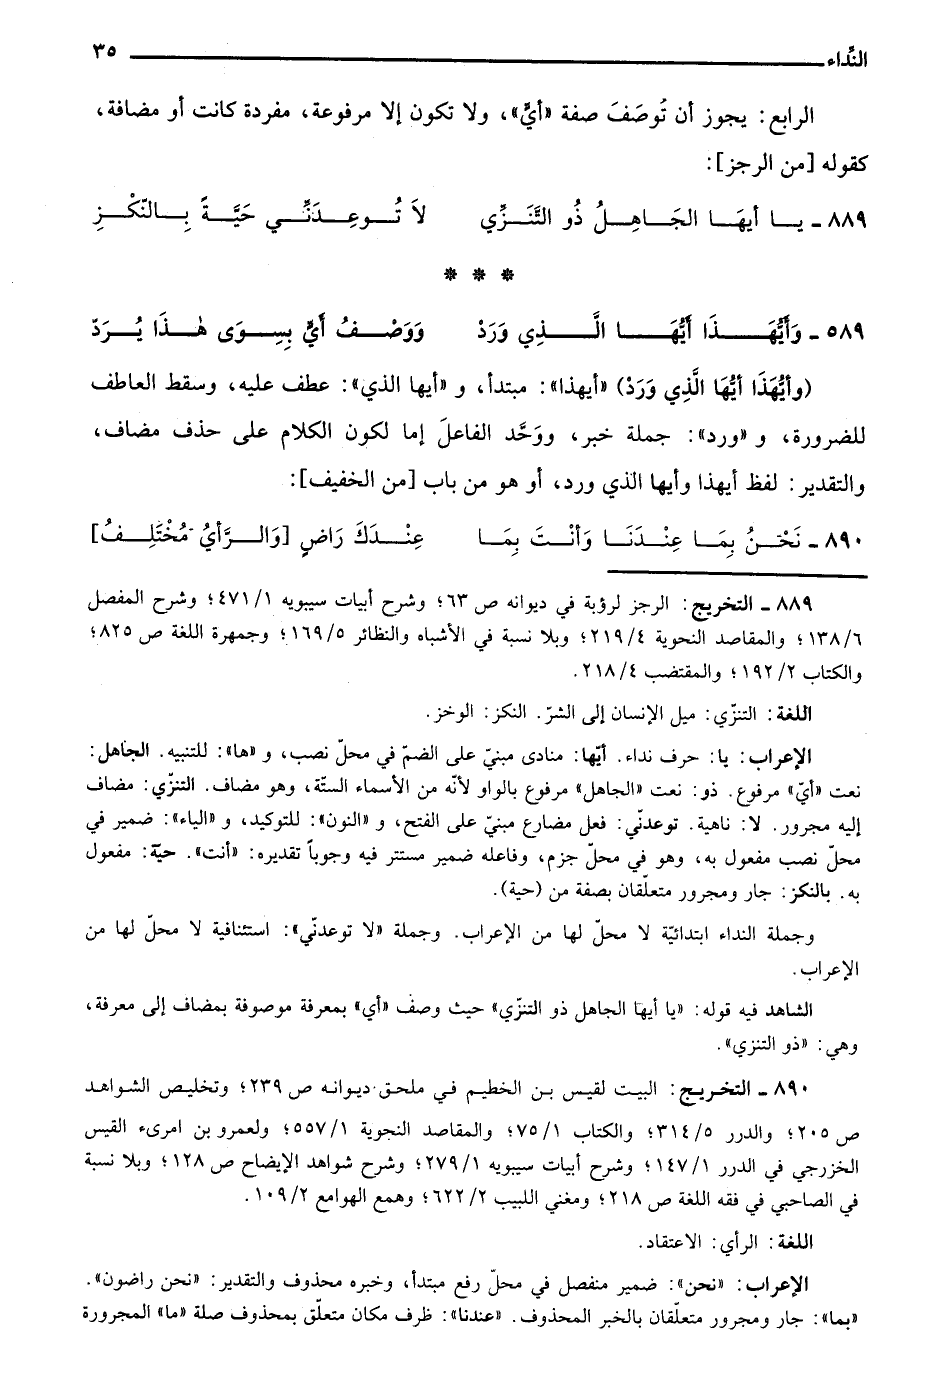 النِّداء ٣٥
الرابع: يجوز أن تُوصَفَ صفة «أيٍّ»، ولا تكون إلا مرفوعة، مفردة كانت أو مضافة،
كقوله [من الرجز]:
٨٨٩ ـ يـا أيهَـا الجَـاهِـلُ ذُو التَّنَـزِّي لاَ تُـوعِـدَنِّـي حَيَّـةً بِـالنّكْـزِ
* * *
٥٨٩ ـ وَأَيُّهَـذَا أَيُّهَـا الَّـذِي وَرَدْ وَوَصْـفُ أَيٍّ بِسِـوَى هٰـذَا يُـرَدّ
(وأَيُّهَذَا أَيُّهَا الَّذِي وَرَدْ) «أيهذا»: مبتدأ، و «أيها الذي»: عطف عليه، وسقط العاطف
للضرورة، و «ورد»: جملة خبر، ووَحَّد الفاعلَ إما لكون الكلام على حذف مضاف،
والتقدير: لفظ أيهذا وأيها الذي ورد، أو هو من باب [من الخفيف]:
٨٩٠ ـ نَحْـنُ بِمَـا عِنْـدَنَـا وَأَنْـتَ بِمَـا عِنْـدَكَ رَاضٍ [وَالـرَّأيُ مُخْتَلِـفُ]
٨٨٩ ـ التخريج: الرجز لرؤبة في ديوانه ص ٦٣؛ وشرح أبيات سيبويه ٤٧١/١؛ وشرح المفصل
١٣٨/٦؛ والمقاصد النحوية ٢١٩/٤؛ وبلا نسبة في الأشباه والنظائر ١٦٩/٥؛ وجمهرة اللغة ص ٨٢٥؛
والكتاب ١٩٢/٢؛ والمقتضب ٢١٨/٤.
اللغة: التنزّي: ميل الإنسان إلى الشرّ. النكز: الوخز.
الإعراب: يا: حرف نداء. أيّها: منادى مبنيّ على الضمّ في محلّ نصب، و «ها»: للتنبيه. الجاهل:
نعت «أيّ» مرفوع. ذو: نعت «الجاهل» مرفوع بالواو لأنّه من الأسماء الستّة، وهو مضاف. التنزّي: مضاف
إليه مجرور. لا: ناهية. توعدنّي: فعل مضارع مبنيّ على الفتح، و «النون»: للتوكيد، و «الياء»: ضمير في
محلّ نصب مفعول به، وهو في محلّ جزم، وفاعله ضمير مستتر فيه وجوباً تقديره: «أنت». حية: مفعول
به. بالنكز: جار ومجرور متعلّقان بصفة من (حية).
وجملة النداء ابتدائيّة لا محلّ لها من الإعراب. وجملة «لا توعدنّي»: استئنافية لا محلّ لها من
الإعراب.
الشاهد فيه قوله: «يا أيها الجاهل ذو التنزّي» حيث وصف «أي» بمعرفة موصوفة بمضاف إلى معرفة،
وهي: «ذو التنزي».
٨٩٠ ـ التخريج: البيت لقيس بن الخطيم في ملحق ديوانه ص ٢٣٩؛ وتخليص الشواهد
ص ٢٠٥؛ والدرر ٣١٤/٥؛ والكتاب ٧٥/١؛ والمقاصد النحوية ٥٥٧/١؛ ولعمرو بن امرىء القيس
الخزرجي في الدرر ١٤٧/١؛ وشرح أبيات سيبويه ٢٧٩/١؛ وشرح شواهد الإيضاح ص ١٢٨؛ وبلا نسبة
في الصاحبي في فقه اللغة ص ٢١٨؛ ومغني اللبيب ٦٢٢/٢؛ وهمع الهوامع ١٠٩/٢.
اللغة: الرأي: الاعتقاد.
الإعراب: «نحن»: ضمير منفصل في محلّ رفع مبتدأ، وخبره محذوف والتقدير: «نحن راضون».
«بما»: جار ومجرور متعلّقان بالخبر المحذوف. «عندنا»: ظرف مكان متعلّق بمحذوف صلة «ما» المجرورة